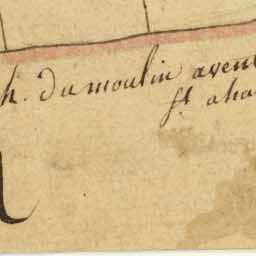 h. du moulin avent
st aha